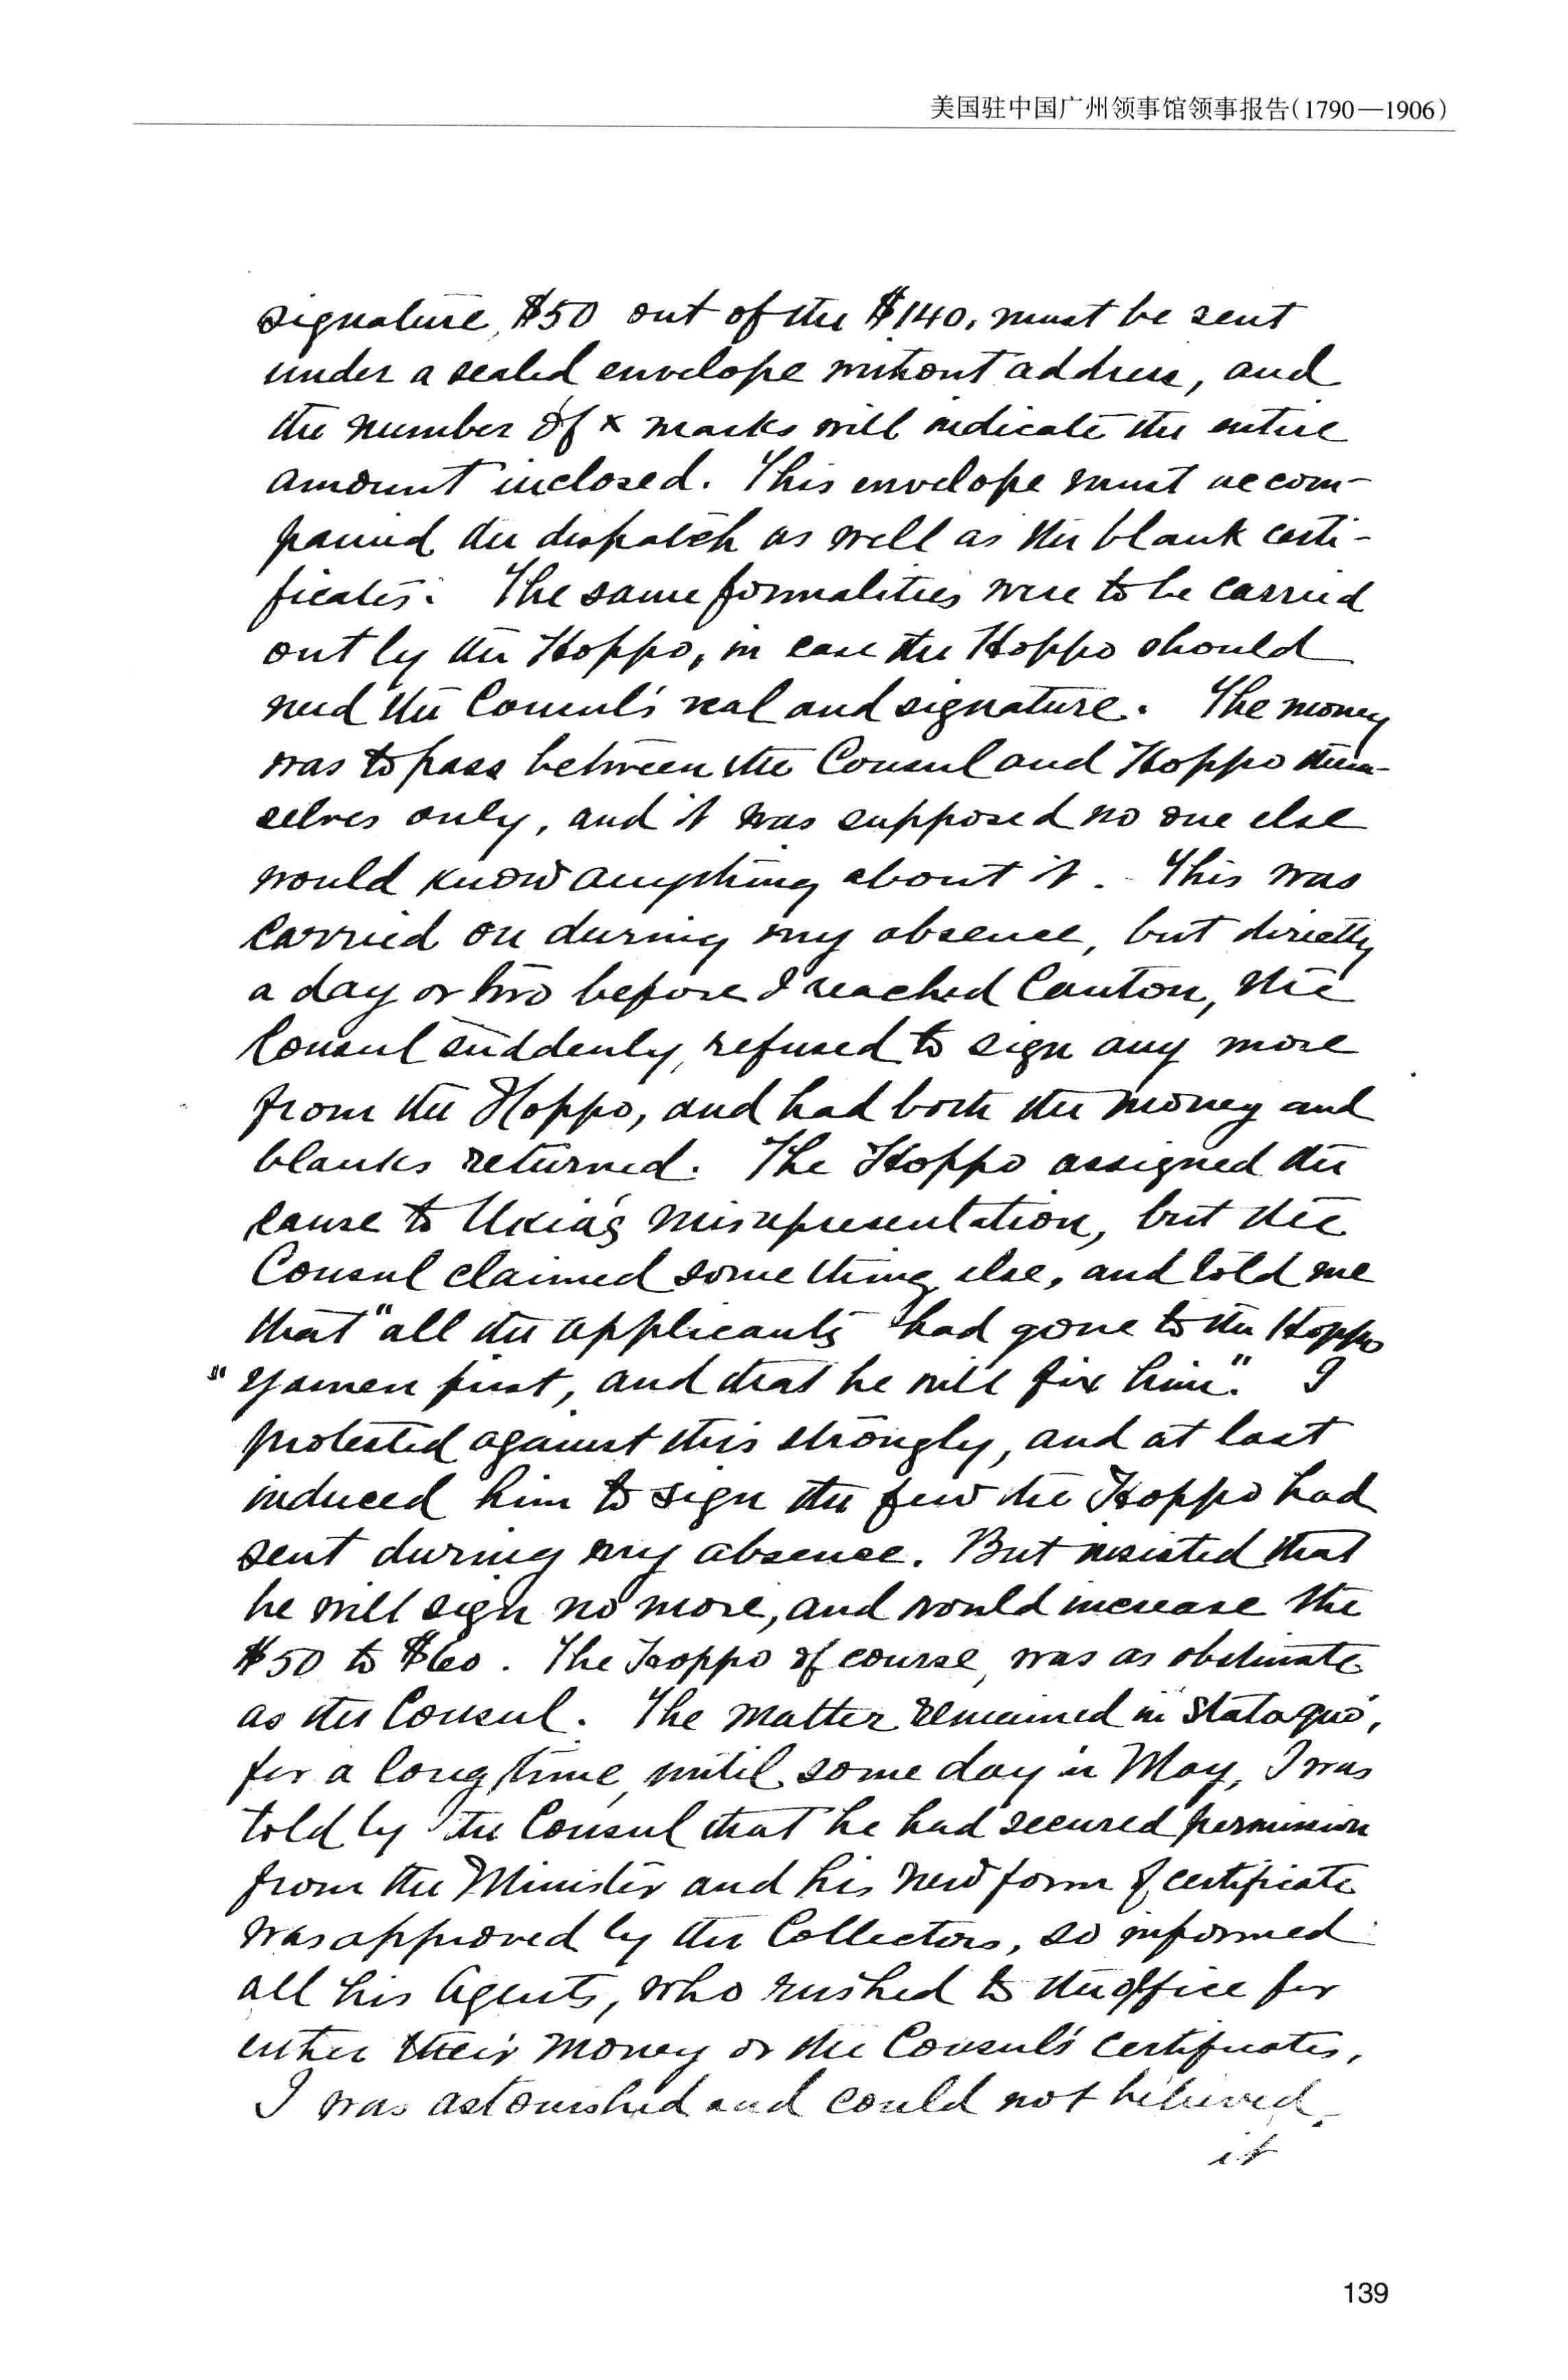 美国驻中国广州领事馆领事报告(1790—1906)
signature, $50 out of the $140, must be sent
under a sealed envelope without address, and
the number of x marks will indicate the entire
amount inclosed. This envelope must accom-
panied the dispatch as well as the blank certi-
ficates. The same formalities were to be carried
out by the Hoppo, in case the Hoppo should
need the Consul's seal and signature. The money
was to pass between the Consul and Hoppo them-
selves only, and it was supposed no one else
would know anything about it. This was
carried on during my absence, but directly
a day or two before I reached Canton, the
Consul suddenly, refused to sign any more
from the Hoppo, and had both the money and
blanks returned. The Hoppo assigned the
cause to misrepresentation, but the
Consul claimed something else, and told me
that "all the applicants had gone to the Hoppo
"Yamen first, and that he will fix him." I
protested against this strongly, and at last
induced him to sign the few the Hoppo had
sent during my absence. But insisted that
he will sign no more, and would increase the
$50 to $60. The Hoppo of course, was as obstinate
as the Consul. The matter remained in stato quo,
for a long time, until some day in May, I was
told by the Consul that he had secured permission
from the Minister and his new form of certificate
was approved by the Collectors, so informed
all his Agents, who rushed to the office for
either their money or the Consul's certificates,
I was astonished and could not believed
it
139